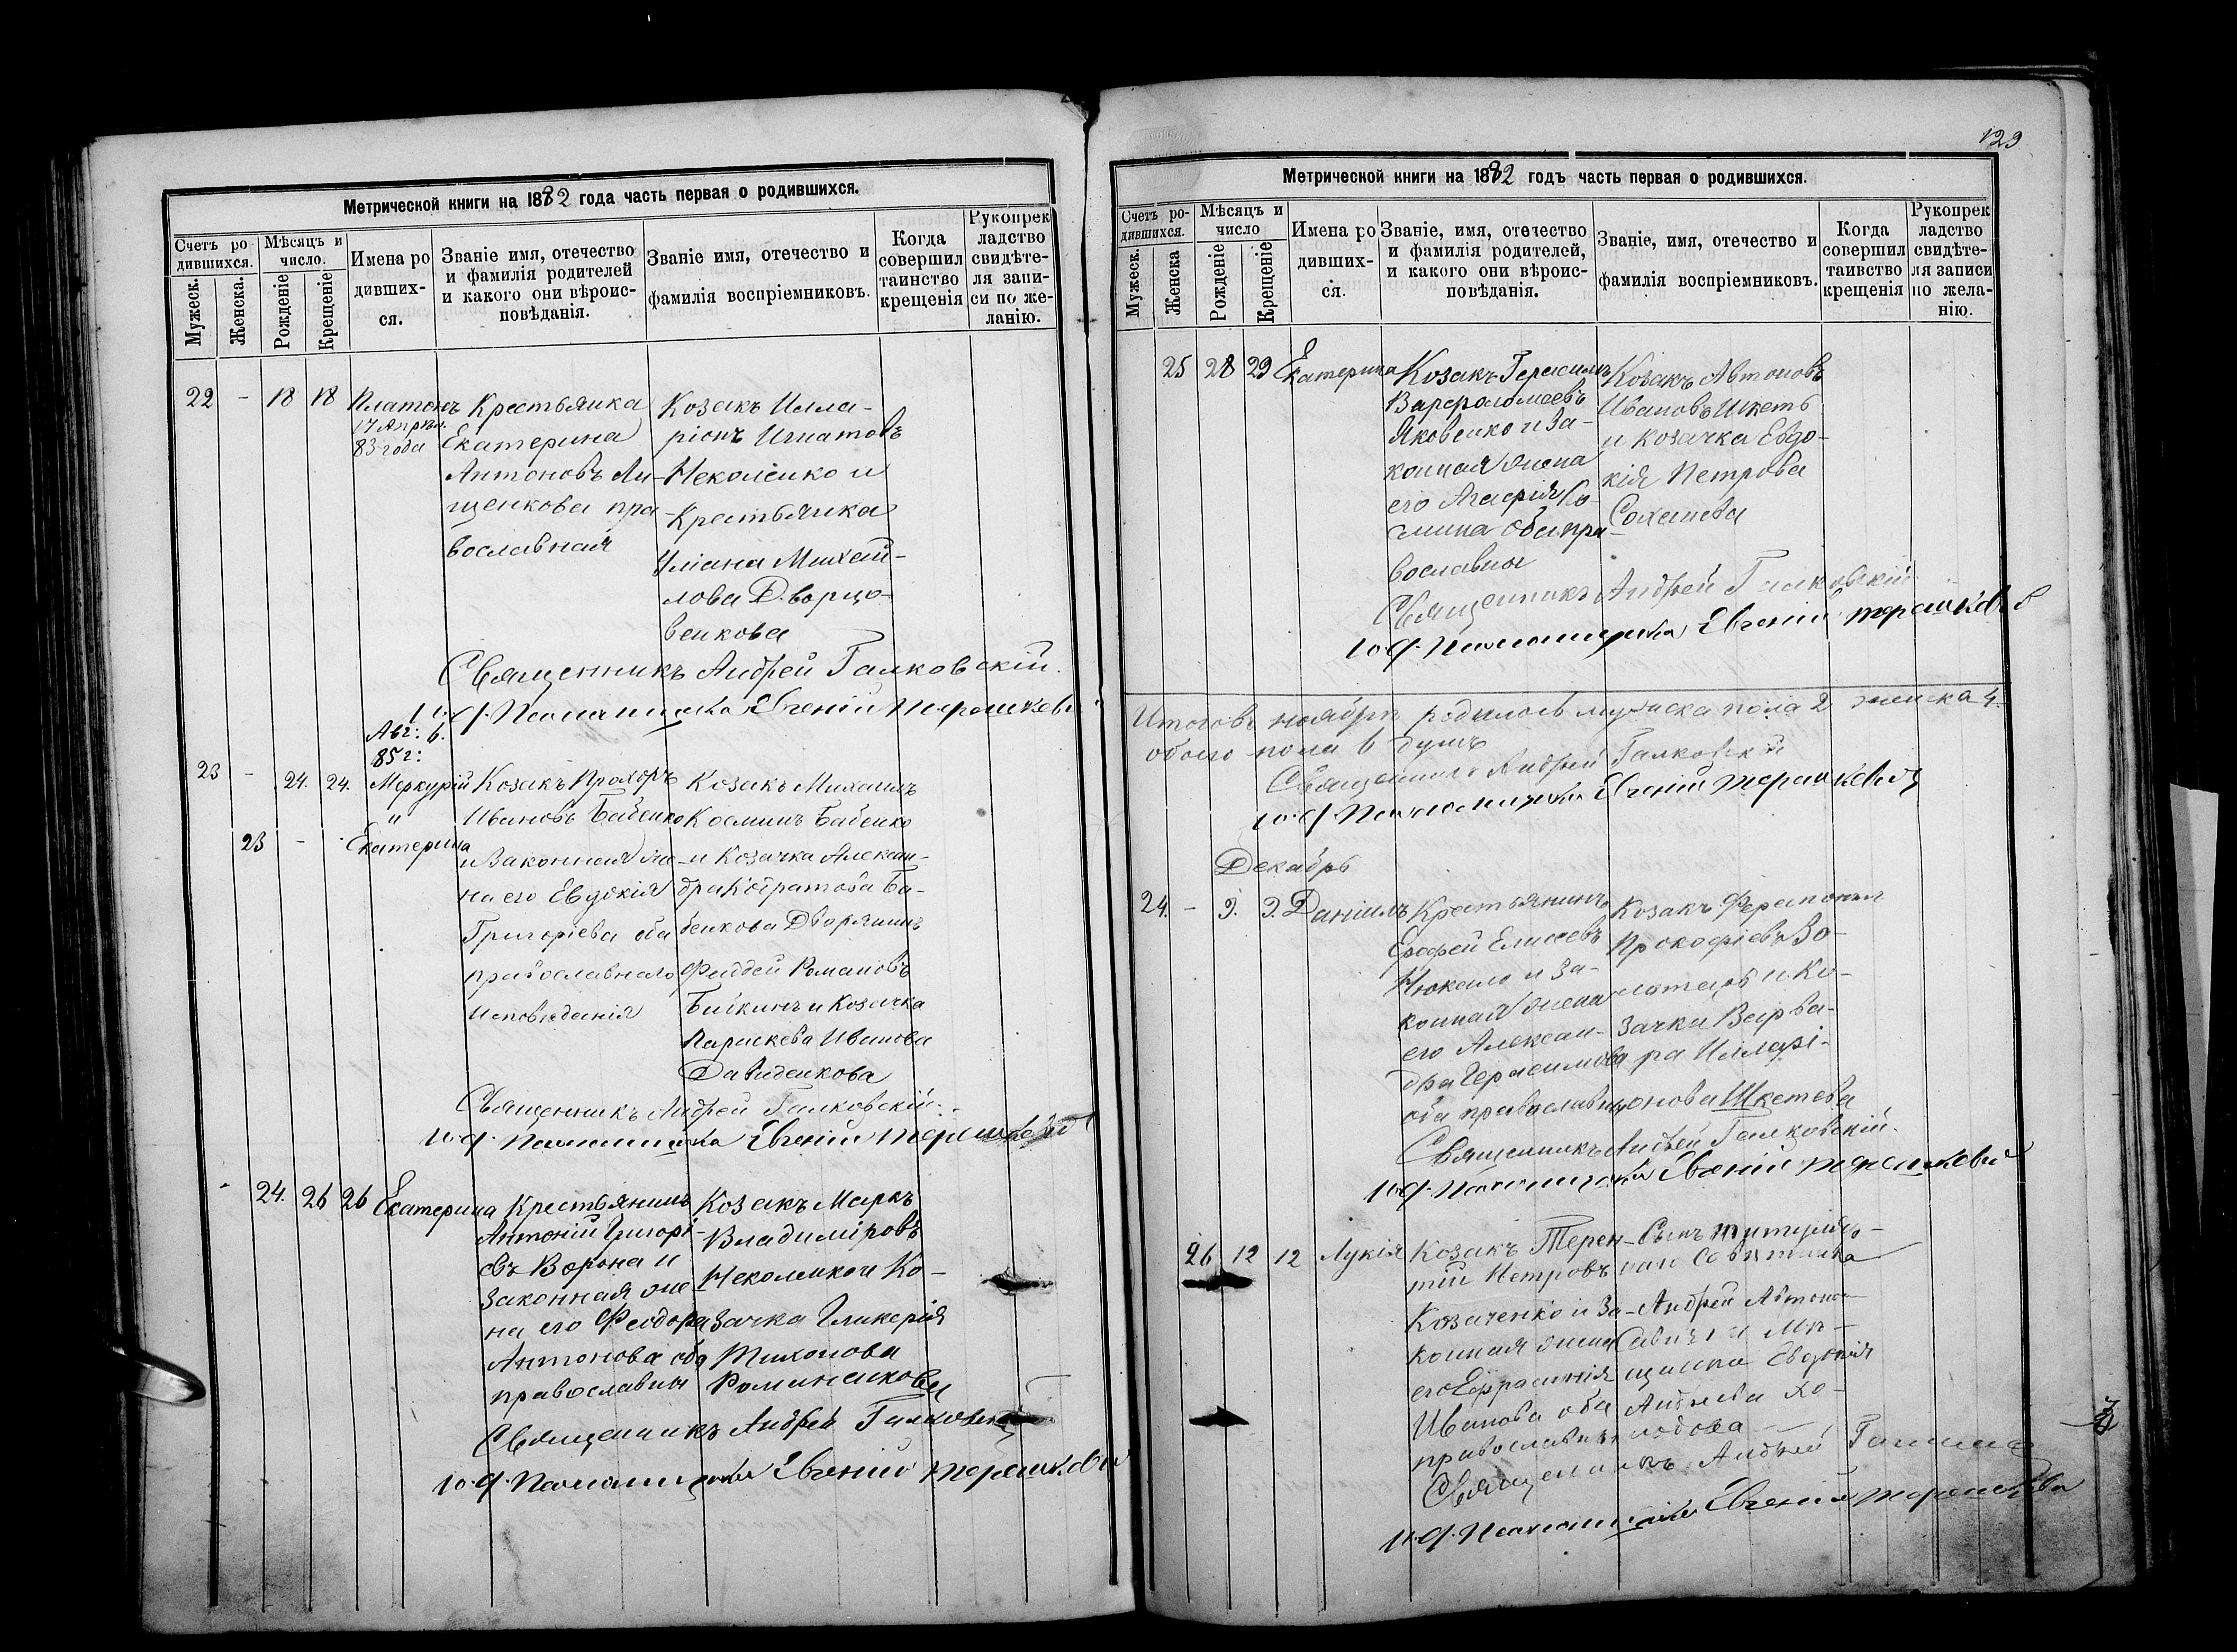 Метрической книги на 1882 года часть первая о родившихся.
Счетъ ро
дившихся.
Мужеск.
Женска.
Мѣсяцъ и
число.
Рожденіе
Крещеніе
Имена ро
дивших-
ся.
Званіе имя, отечество
и фамилія родителей
и какого они вѣроис-
повѣданія.
Званіе имя, отечество и
фамилія воспріемниковъ.
Когда
совершил
таинство
крещенія
Рукоприк
ладство
свидѣте-
ля запи-
си по же-
ланію.
22 - 18 18
Платонъ
17 Апрѣл.
83 года
Крестьянка
Екатерина
Антоновъ Ли-
щенкова пра-
вославная
Козакъ Илла-
ріонъ Игнатовъ
Неколенко и
Крестьянка
Уліана Михай-
лова Дворцо-
венкова
Священникъ Андрей Галковскій.
И. д. Псаломщика Евгеній Терешкевич
Авг: 6.
85 г:
23 - 24. 24.
Меркурій
"
23 -
Екатерина
Козакъ Прохоръ
Ивановъ Бабенко
и Законная же-
на его Евдокія
Григоріева оба
православнаго
исповѣданія
Козакъ Михаилъ
Косминъ Бабенко
и Козачка Алексан-
дра Кодратова Ба-
бенкова Дворянинъ
Фаддей Романовъ
Бійкинъ и Козачка
Параскева Иванова
Давиденкова
Священникъ Андрей Галковскій.
И. д. Псаломщика Евгеній Терешкевич
- 24. 26 26
Екатерина
Крестьянинъ
Антоній Григорі-
евъ Ворона и
Законная же-
на его Феодора
Антонова оба
православны
Козакъ Маркъ
Владиміровъ
Неколенко и Ко-
зачка Гликерія
Тихонова
Романенкова
Священникъ Андрей Галковскій
И. д. Псаломщика Евгеній Терешкевич
123
Метрической книги на 1882 годъ часть первая о родившихся.
Счетъ ро-
дившихся.
Мужеск.
Женска
Мѣсяцъ и
число
Рожденіе
Крещеніе
Имена ро
дивших-
ся.
Званіе, имя, отечество
и фамилія родителей,
и какого они вѣроис-
повѣданія.
Званіе, имя, отечество и
фамилія воспріемниковъ.
Когда
совершил
таивство
крещенія
Рукопрек
ладство
свидѣте-
ля записи
по жела-
нію.
25 28 29
Екатерина
Козакъ Герасимъ
Варфоломеевъ
Яковенко и За-
конная жена
его Агафія Ко-
смина оба пра-
вославны
Козакъ Автоновъ
Ивановъ Шкеть
и козачка Евдо-
кія Петрова
Сохацева
Священникъ Андрей Галковскій
И. д. Псаломщика Евгеній Терешкевич
Итого въ ноябрѣ родилось мужска пола 2 женска 4.
обоего пола 6 душъ
Священникъ Андрей Галковскій
И. д. Псаломщика Евгеній Терешкевич
Декабрь
24. - 9. 9.
Даніилъ
Крестьянинъ
Ерофей Елисеевъ
Нюкало и За-
конная жена
его Алексан-
дра Герасимова
оба православны
Козакъ Ферапонтъ
Прокофіевъ Зо-
лотарь и Ко-
зачка Варва-
ра Илларі-
онова Шкетева
Священникъ Андрей Галковскій.
И. д. Псаломщика Евгеній Терешкевич
26 12 12
Лукія
Козакъ Терен-
тій Петровъ
Козаченко и За-
конная жена
его Ефросинія
Иванова оба
православны
Сынъ Титуляр-
наго Совѣтника
Андрей Автоно-
Савичъ и Мѣ-
щанка Евдокія
Андреева Хо-
лодова
Священникъ Андрей
И. д. Псаломщика Евгеній Терешкевич